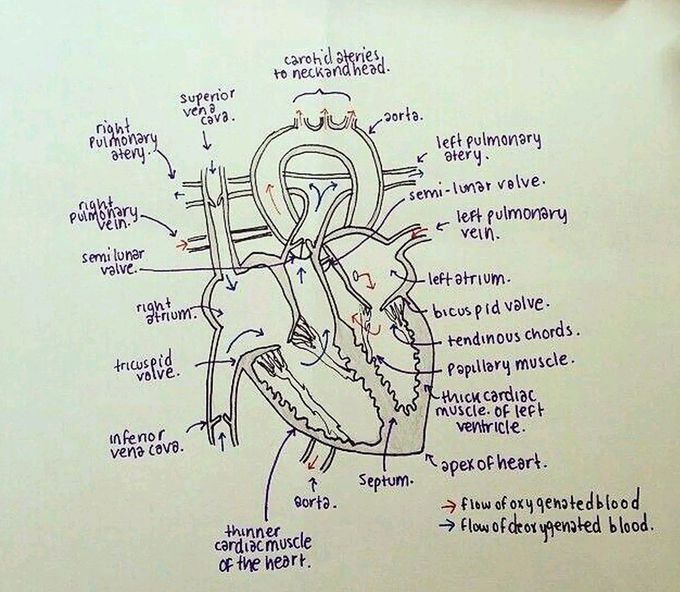 carotid ateries
to neck and head.
superior
vena
cava.
aorta.
right
pulmonary
atery.
left pulmonary
atery.
semi-lunar valve.
right
pulmonary
vein.
left pulmonary
vein.
semi lunar
valve.
left atrium.
right
atrium.
bicuspid valve.
tendinous chords.
tricuspid
valve.
papillary muscle.
thick cardiac
muscle of left
ventricle.
inferior
vena cava.
apex of heart.
septum.
aorta.
→ flow of oxygenated blood
→ flow of deoxygenated blood.
thinner
cardiac muscle
of the heart.